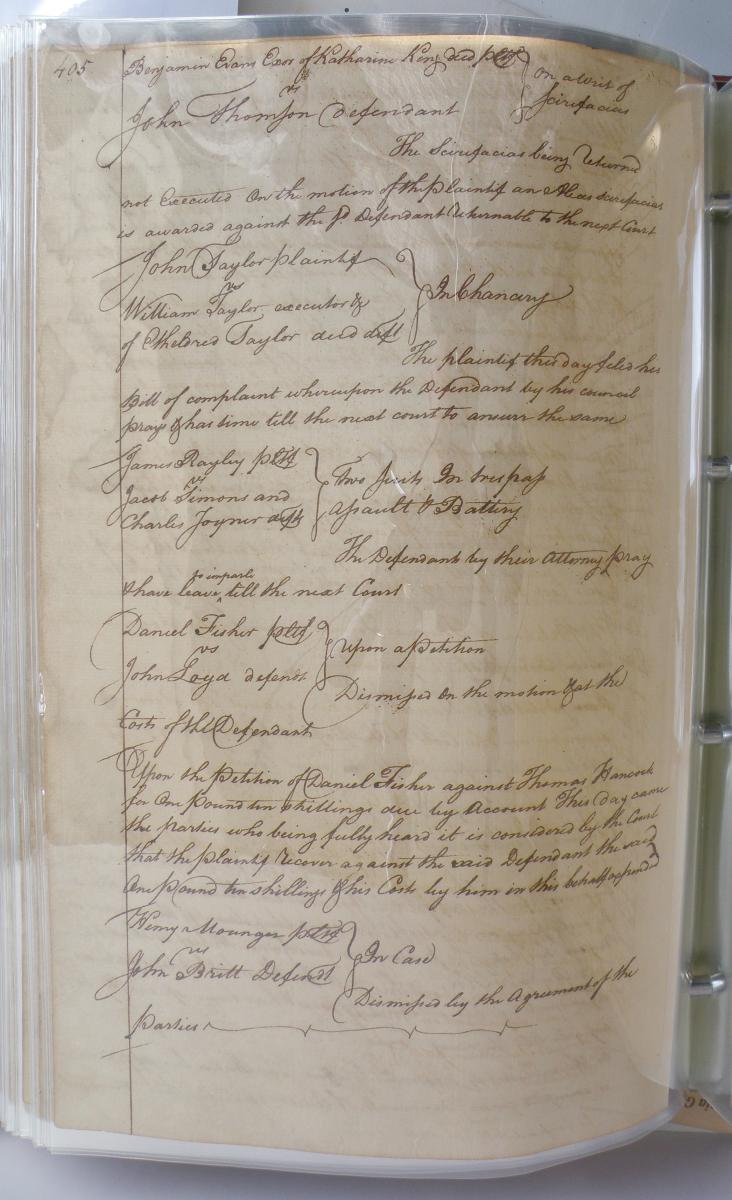 405
Benjamin Evans Exor of Katharine King decd pltf
vs
on a writ of
Scirefacias
John Thomson defendant
The Scirefacias being Returnd
not Executed On the motion of the plaintif an Alias scirefacias
is awarded against the sd. Defendant Returnable to the next Court
John Taylor plaintif
vs
In Chancery
William Taylor executor &
of Etheldred Taylor decd deft
The plaintif this day filed his
Bill of complaint whereupon the Defendant by his council
prays & has time till the next court to answer the same
James Rayley pltf
vs
Two suits In trespass
Jacob Simons and
assault & Battery
Charles Joyner defts
The Defendants by their Attorney pray
to imparle
& have leave ‸ till the next Court
Daniel Fisher pltf
vs
Upon a petition
John Loyd defendt
Dismissed on the motion & at the
Costs of the Defendant
Upon the Petition of Daniel Fisher against Thomas Hancock
for One pound ten shillings due by Account This day came
the parties who being fully heard it is considered by the Court
that the plaintif Recover against the said Defendant the said
One pound ten shillings & his Costs by him in this behalf expended
Henry Mounger pltf
vs
In Case
John Britt Defendt
Dismissed by the Agreement of the
Parties